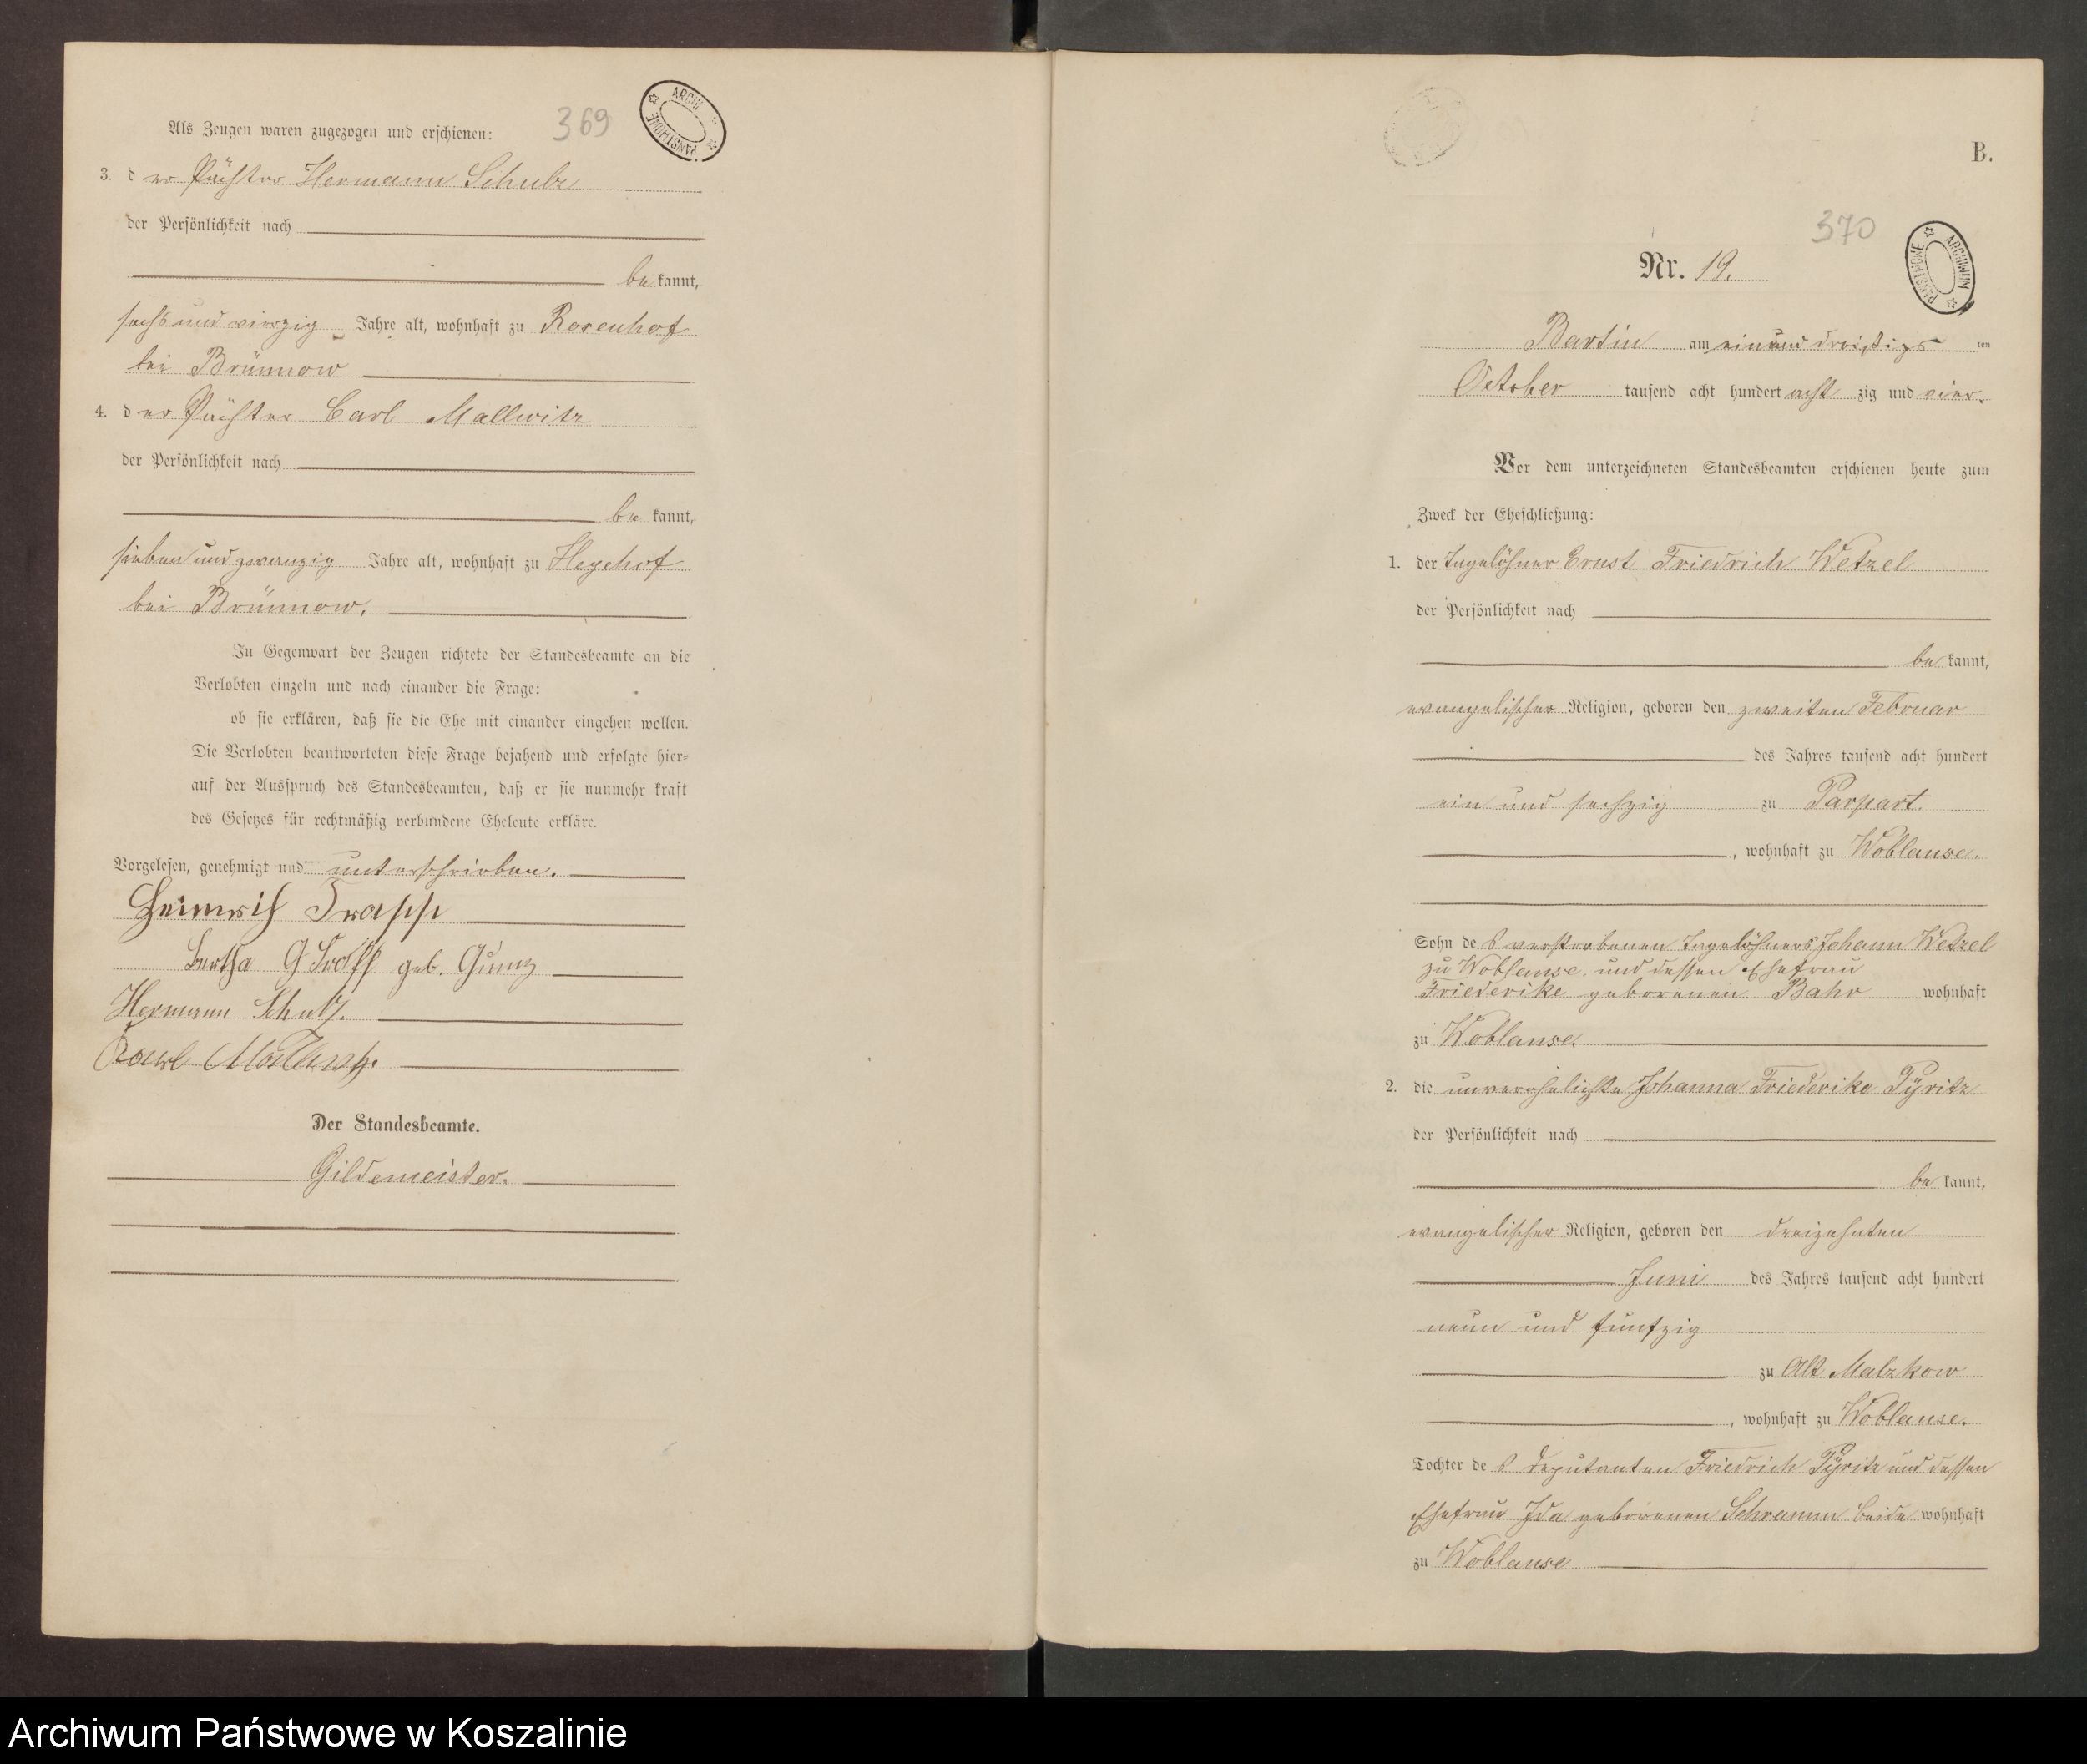 369
Als Zeugen waren zugezogen und erschienen:
3. der Pächter Hermann Schulz
der Persönlichkeit nach
bekannt,
sechs und vierzig Jahre alt, wohnhaft zu Rosenhof
bei Brünnow
4. der Pächter Carl Mallwitz
der Persönlichkeit nach
bekannt,
sieben und zwanzig Jahre alt, wohnhaft zu Hegehof
bei Brünnow.
In Gegenwart der Zeugen richtete der Standesbeamte an die
Verlobten einzeln und nach einander die Frage:
ob sie erklären, daß sie die Ehe mit einander eingehen wollen.
Die Verlobten beantworteten diese Frage bejahend und erfolgte hier-
auf der Ausspruch des Standesbeamten, daß er sie nunmehr kraft
des Gesetzes für rechtmäßig verbundene Eheleute erkläre.
Vorgelesen, genehmigt und unterschrieben.
Heinrich Trapp
Bertha Trapp geb. Gumz
Hermann Schulz.
Carl Mallwitz.
Der Standesbeamte.
Gildemeister.
B.
370
ARCHIWUM PAŃSTWOWE
Nr. 19.
Bartin am ein und dreißigsten
October tausend acht hundert achtzig und vier.
Vor dem unterzeichneten Standesbeamten erschienen heute zum
Zweck der Eheschließung:
1. der Tagelöhner Ernst Friedrich Wetzel
der Persönlichkeit nach
bekannt,
evangelischer Religion, geboren den zweiten Februar
des Jahres tausend acht hundert
ein und sechzig zu Parpart.
, wohnhaft zu Woblanse.
Sohn des verstorbenen Tagelöhners Johann Wetzel
zu Woblanse und dessen Ehefrau
Friederike geborenen Bahr wohnhaft
zu Woblanse.
2. die unverehelichte Johanna Friederike Pyritz
der Persönlichkeit nach
bekannt,
evangelischer Religion, geboren den dreizehnten
Juni des Jahres tausend acht hundert
neun und fünfzig
zu Alt Malzkow
, wohnhaft zu Woblanse.
Tochter des Deputanten Friedrich Pyritz und dessen
Ehefrau Ida geborenen Schramm beide wohnhaft
zu Woblanse
Archiwum Państwowe w Koszalinie